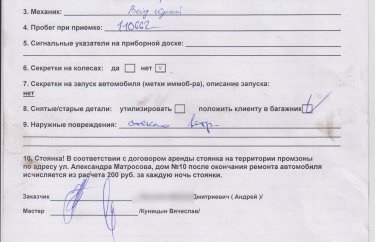 3. Механик:
4. Пробег при приемке: 110662
5. Сигнальные указатели на приборной доске:
6. Секретки на колесах: да нет v
7. Секретки на запуск автомобиля (метки иммоб-ра), описание запуска:
нет
8. Снятые/старые детали: утилизировать положить клиенту в багажник
9. Наружные повреждения: стекло ветр.
10. Стоянка! В соответствии с договором аренды стоянка на территории промзоны
по адресу ул. Александра Матросова, дом №10 после окончания ремонта автомобиля
исчисляется из расчета 200 руб. за каждую ночь стоянки.
Заказчик Дмитриевич ( Андрей )/
Мастер /Куницын Вячеслав/